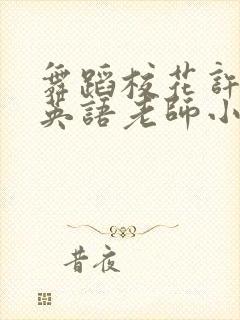 舞蹈校花許
英語老師小
昔夜